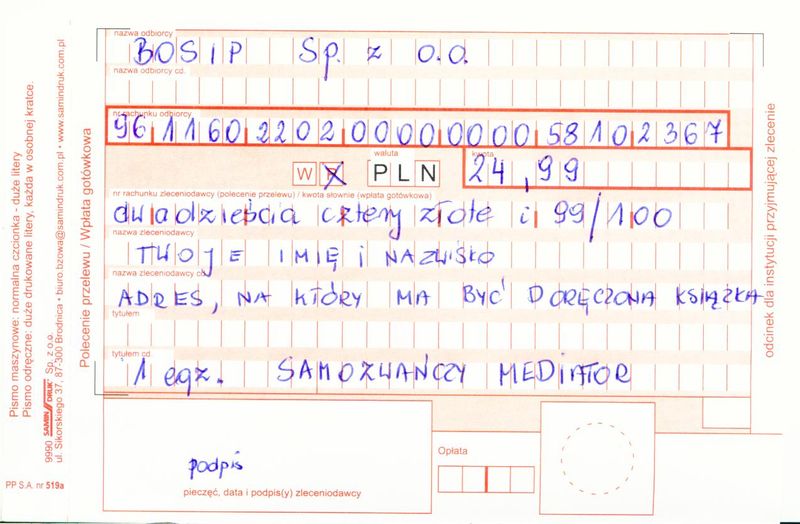 nazwa odbiorcy
BOSIP Sp. z o.o.
nazwa odbiorcy cd.
nr rachunku odbiorcy
96 1160 2202 0000 0000 5810 2367
W P
waluta
PLN
kwota
24,99
nr rachunku zleceniodawcy (polecenie przelewu) / kwota słownie (wpłata gotówkowa)
dwadzieścia cztery złote i 99/100
nazwa zleceniodawcy
TWOJE IMIĘ I NAZWISKO
nazwa zleceniodawcy cd.
ADRES, NA KTÓRY MA BYĆ DORĘCZONA KSIĄŻKA
tytułem
tytułem cd.
1 egz. SAMOZWAŃCZY MEDIATOR
podpis
pieczęć, data i podpis(y) zleceniodawcy
Opłata
odcinek dla instytucji przyjmującej zlecenie
Polecenie przelewu / Wpłata gotówkowa
Pismo maszynowe: normalna czcionka - duże litery
Pismo odręczne: duże drukowane litery, każda w osobnej kratce.
9990 SAMIN DRUK Sp. z o.o.
ul. Sikorskiego 37, 87-300 Brodnica • biuro.bzowa@samindruk.com.pl • www.samindruk.com.pl
PP S.A. nr 519a